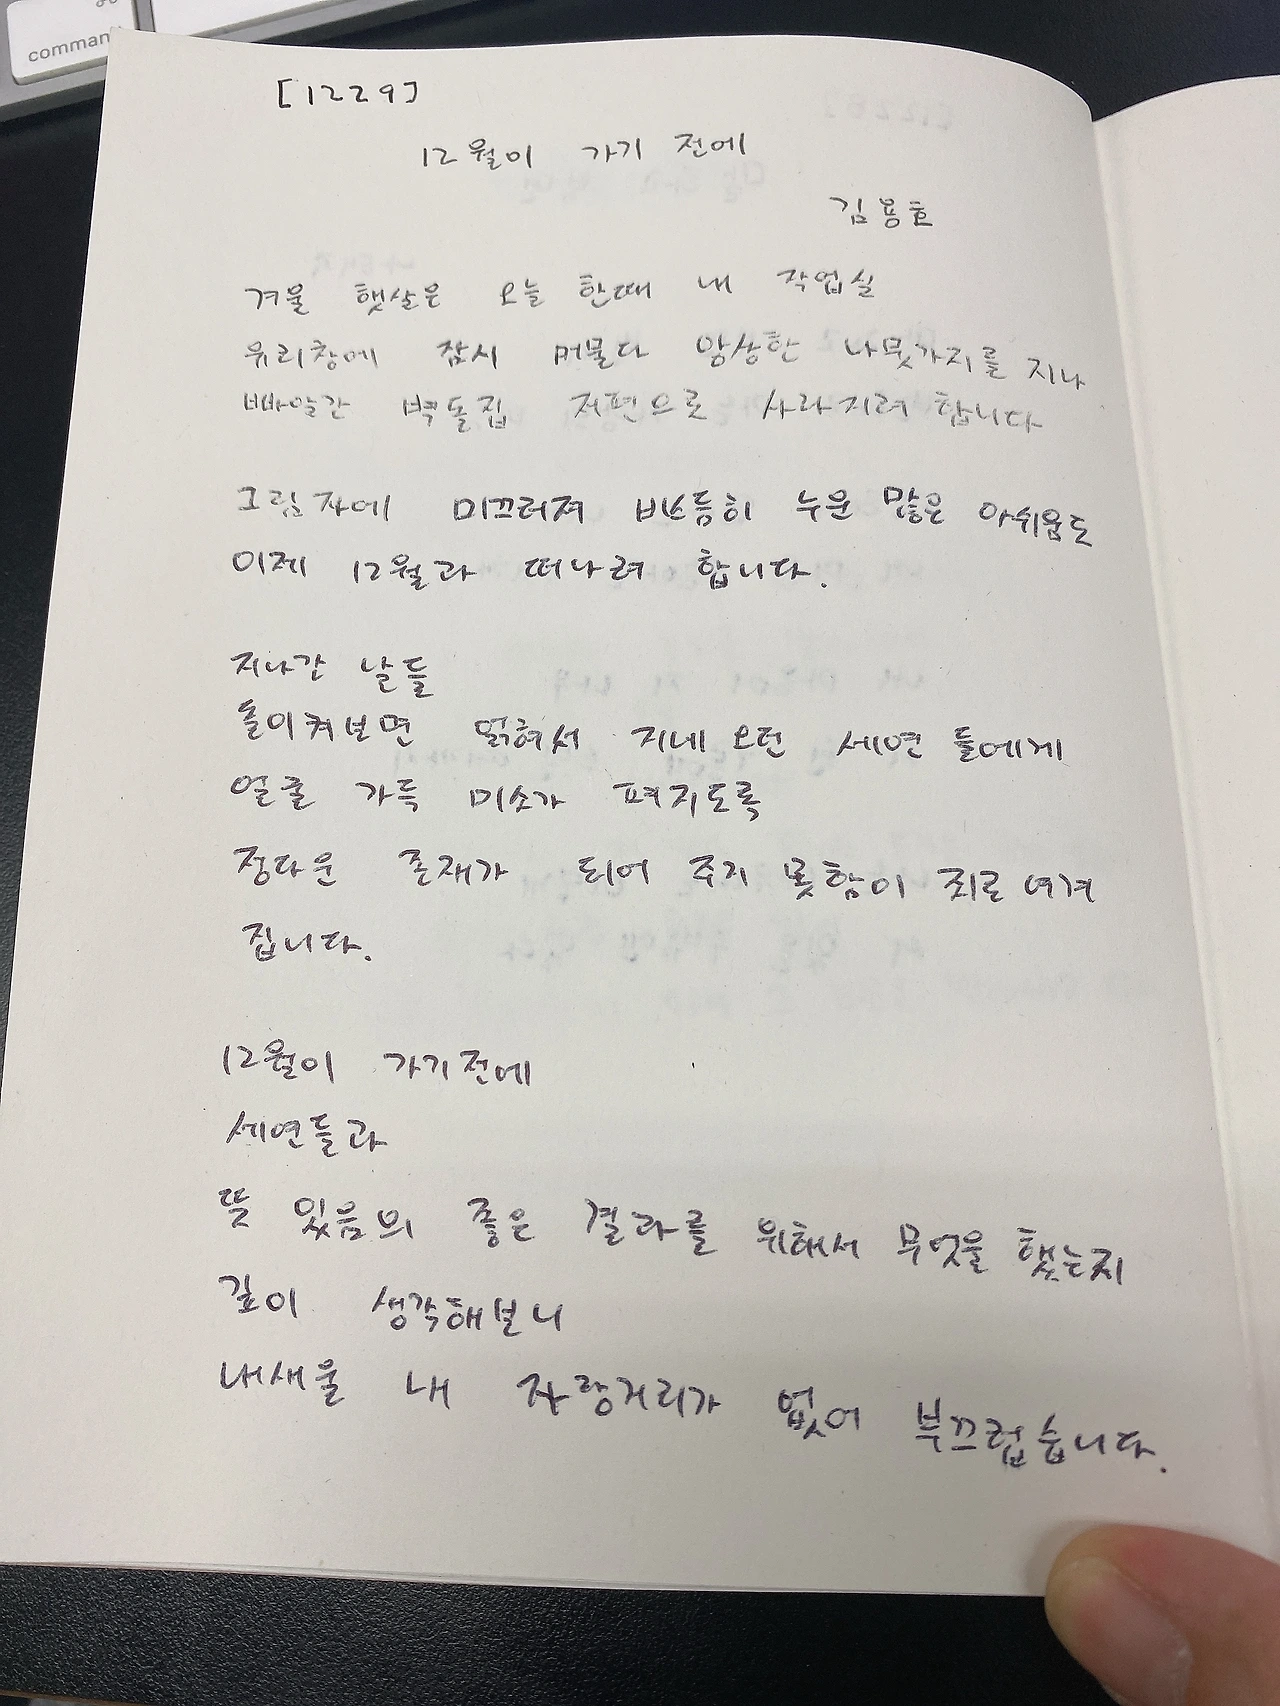 command
[1229]
12월이 가기 전에
김용호
겨울 햇살은 오늘 한때 내 작업실
유리창에 잠시 머물다 앙상한 나뭇가지를 지나
빠알간 벽돌집 저편으로 사라지려 합니다
그림자에 미끄러져 비스듬히 누운 많은 아쉬움도
이제 12월과 떠나려 합니다.
지나간 날들
돌이켜보면 얽혀서 지내오던 세연들에게
얼굴 가득 미소가 펴지도록
정다운 존재가 되어 주지 못함이 죄로 여겨
집니다.
12월이 가기전에
세연들과
뜻 있음의 좋은 결과를 위해서 무엇을 했는지
깊이 생각해보니
내새울 내 자랑거리가 없어 부끄럽습니다.